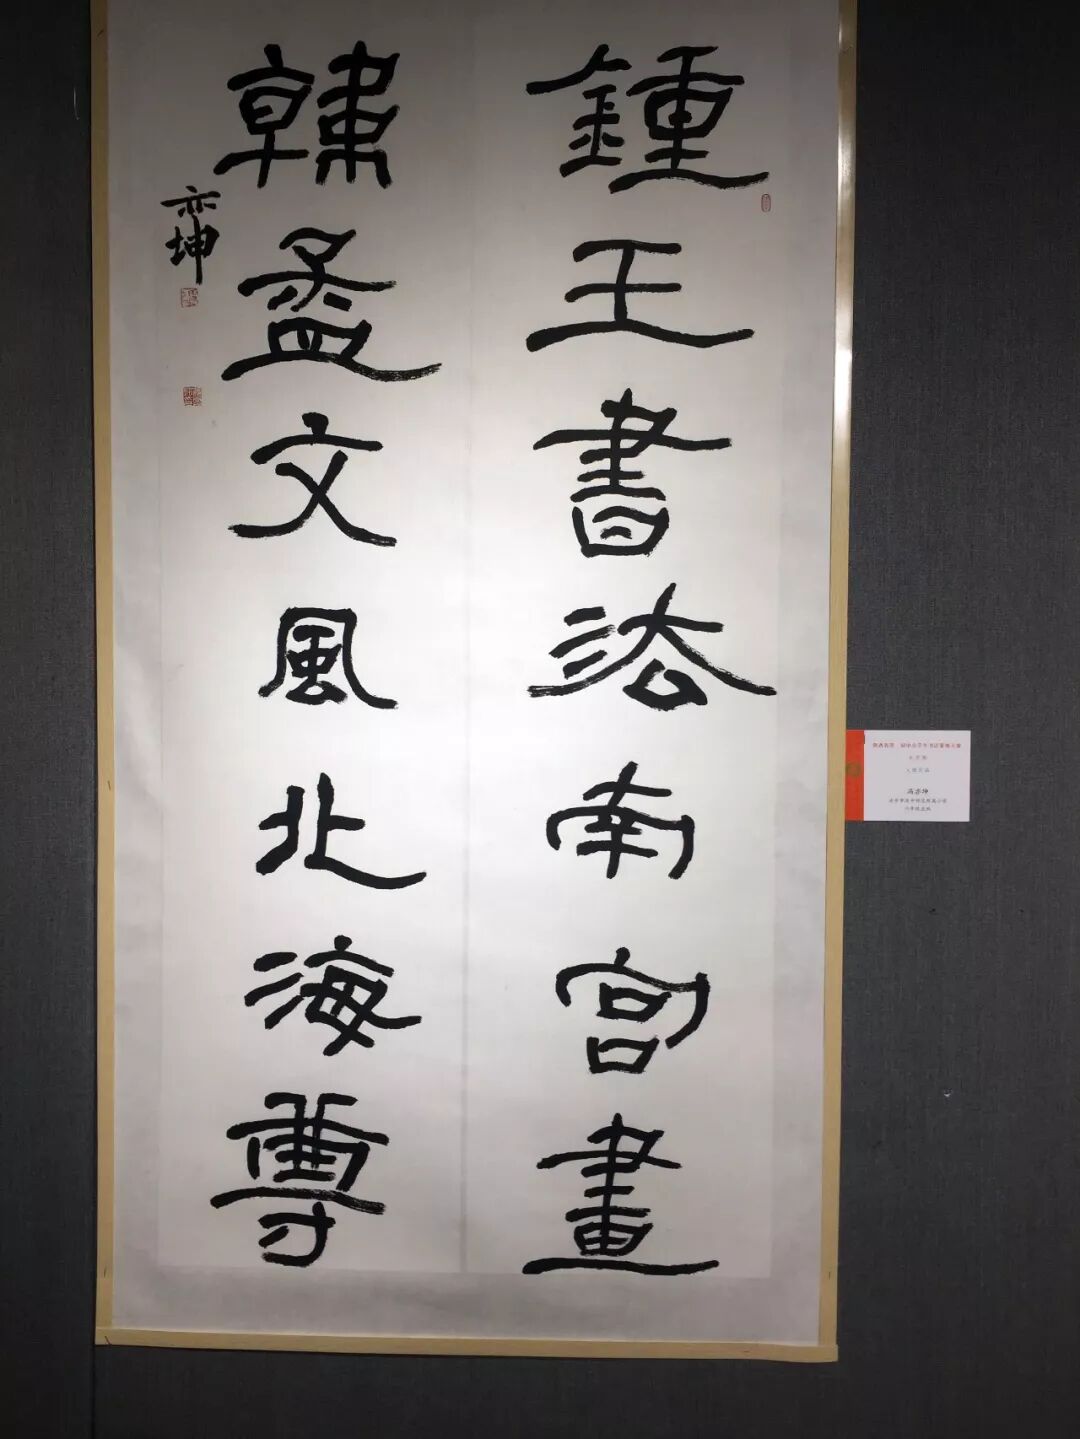 鍾王書法南宮畫
韓孟文風北海尊
亦坤
高亦坤